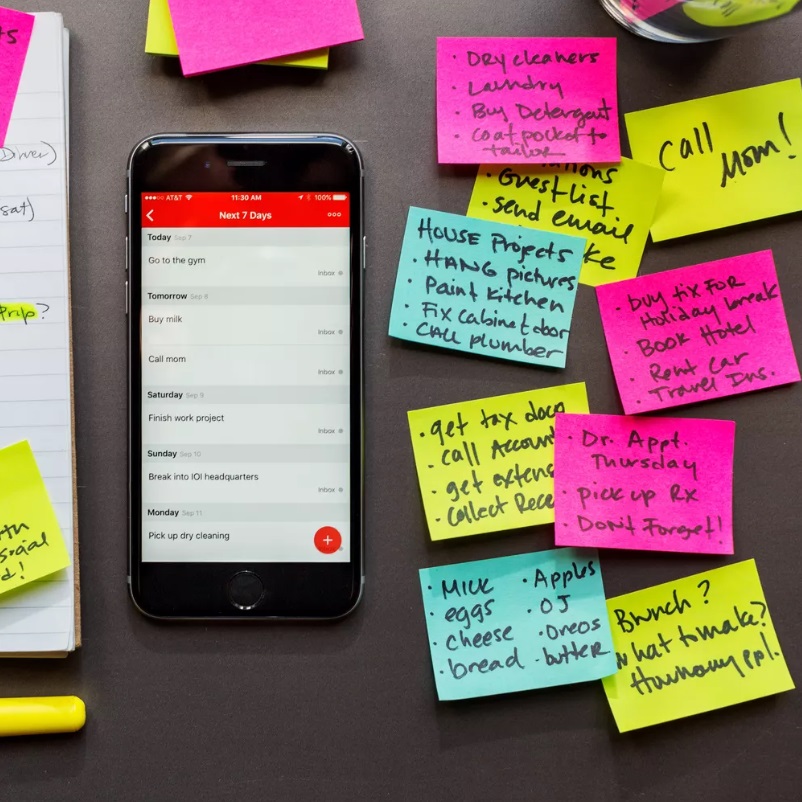 s
Driver)
sat)
Prep?
cial
d!
AT&T 11:30 AM 100%
Next 7 Days
Today Sep 7
Go to the gym
Inbox
Tomorrow Sep 8
Buy milk
Inbox
Call mom
Inbox
Saturday Sep 9
Finish work project
Inbox
Sunday Sep 10
Break into IOI headquarters
Inbox
Monday Sep 11
Pick up dry cleaning
+
• Dry cleaners
• Laundry
• Buy Detergent
• Coat pocket to
tailor
Call
Mom!
Guest list
• send email
ke
HOUSE Projects
• HANG pictures
• Paint kitchen
• Fix cabinet door
• CALL plumber
• buy tix FOR
Holiday break
• BOOK Hotel
• Rent Car
• Travel Ins.
• get tax docs
• call Account
• get extens
• collect Rece
• Dr. Appt.
Thursday
• pick up Rx
• DON'T Forget!
• MILK • Apples
• eggs • OJ
• cheese • Oreos
• bread • butter
Brunch?
what to make?